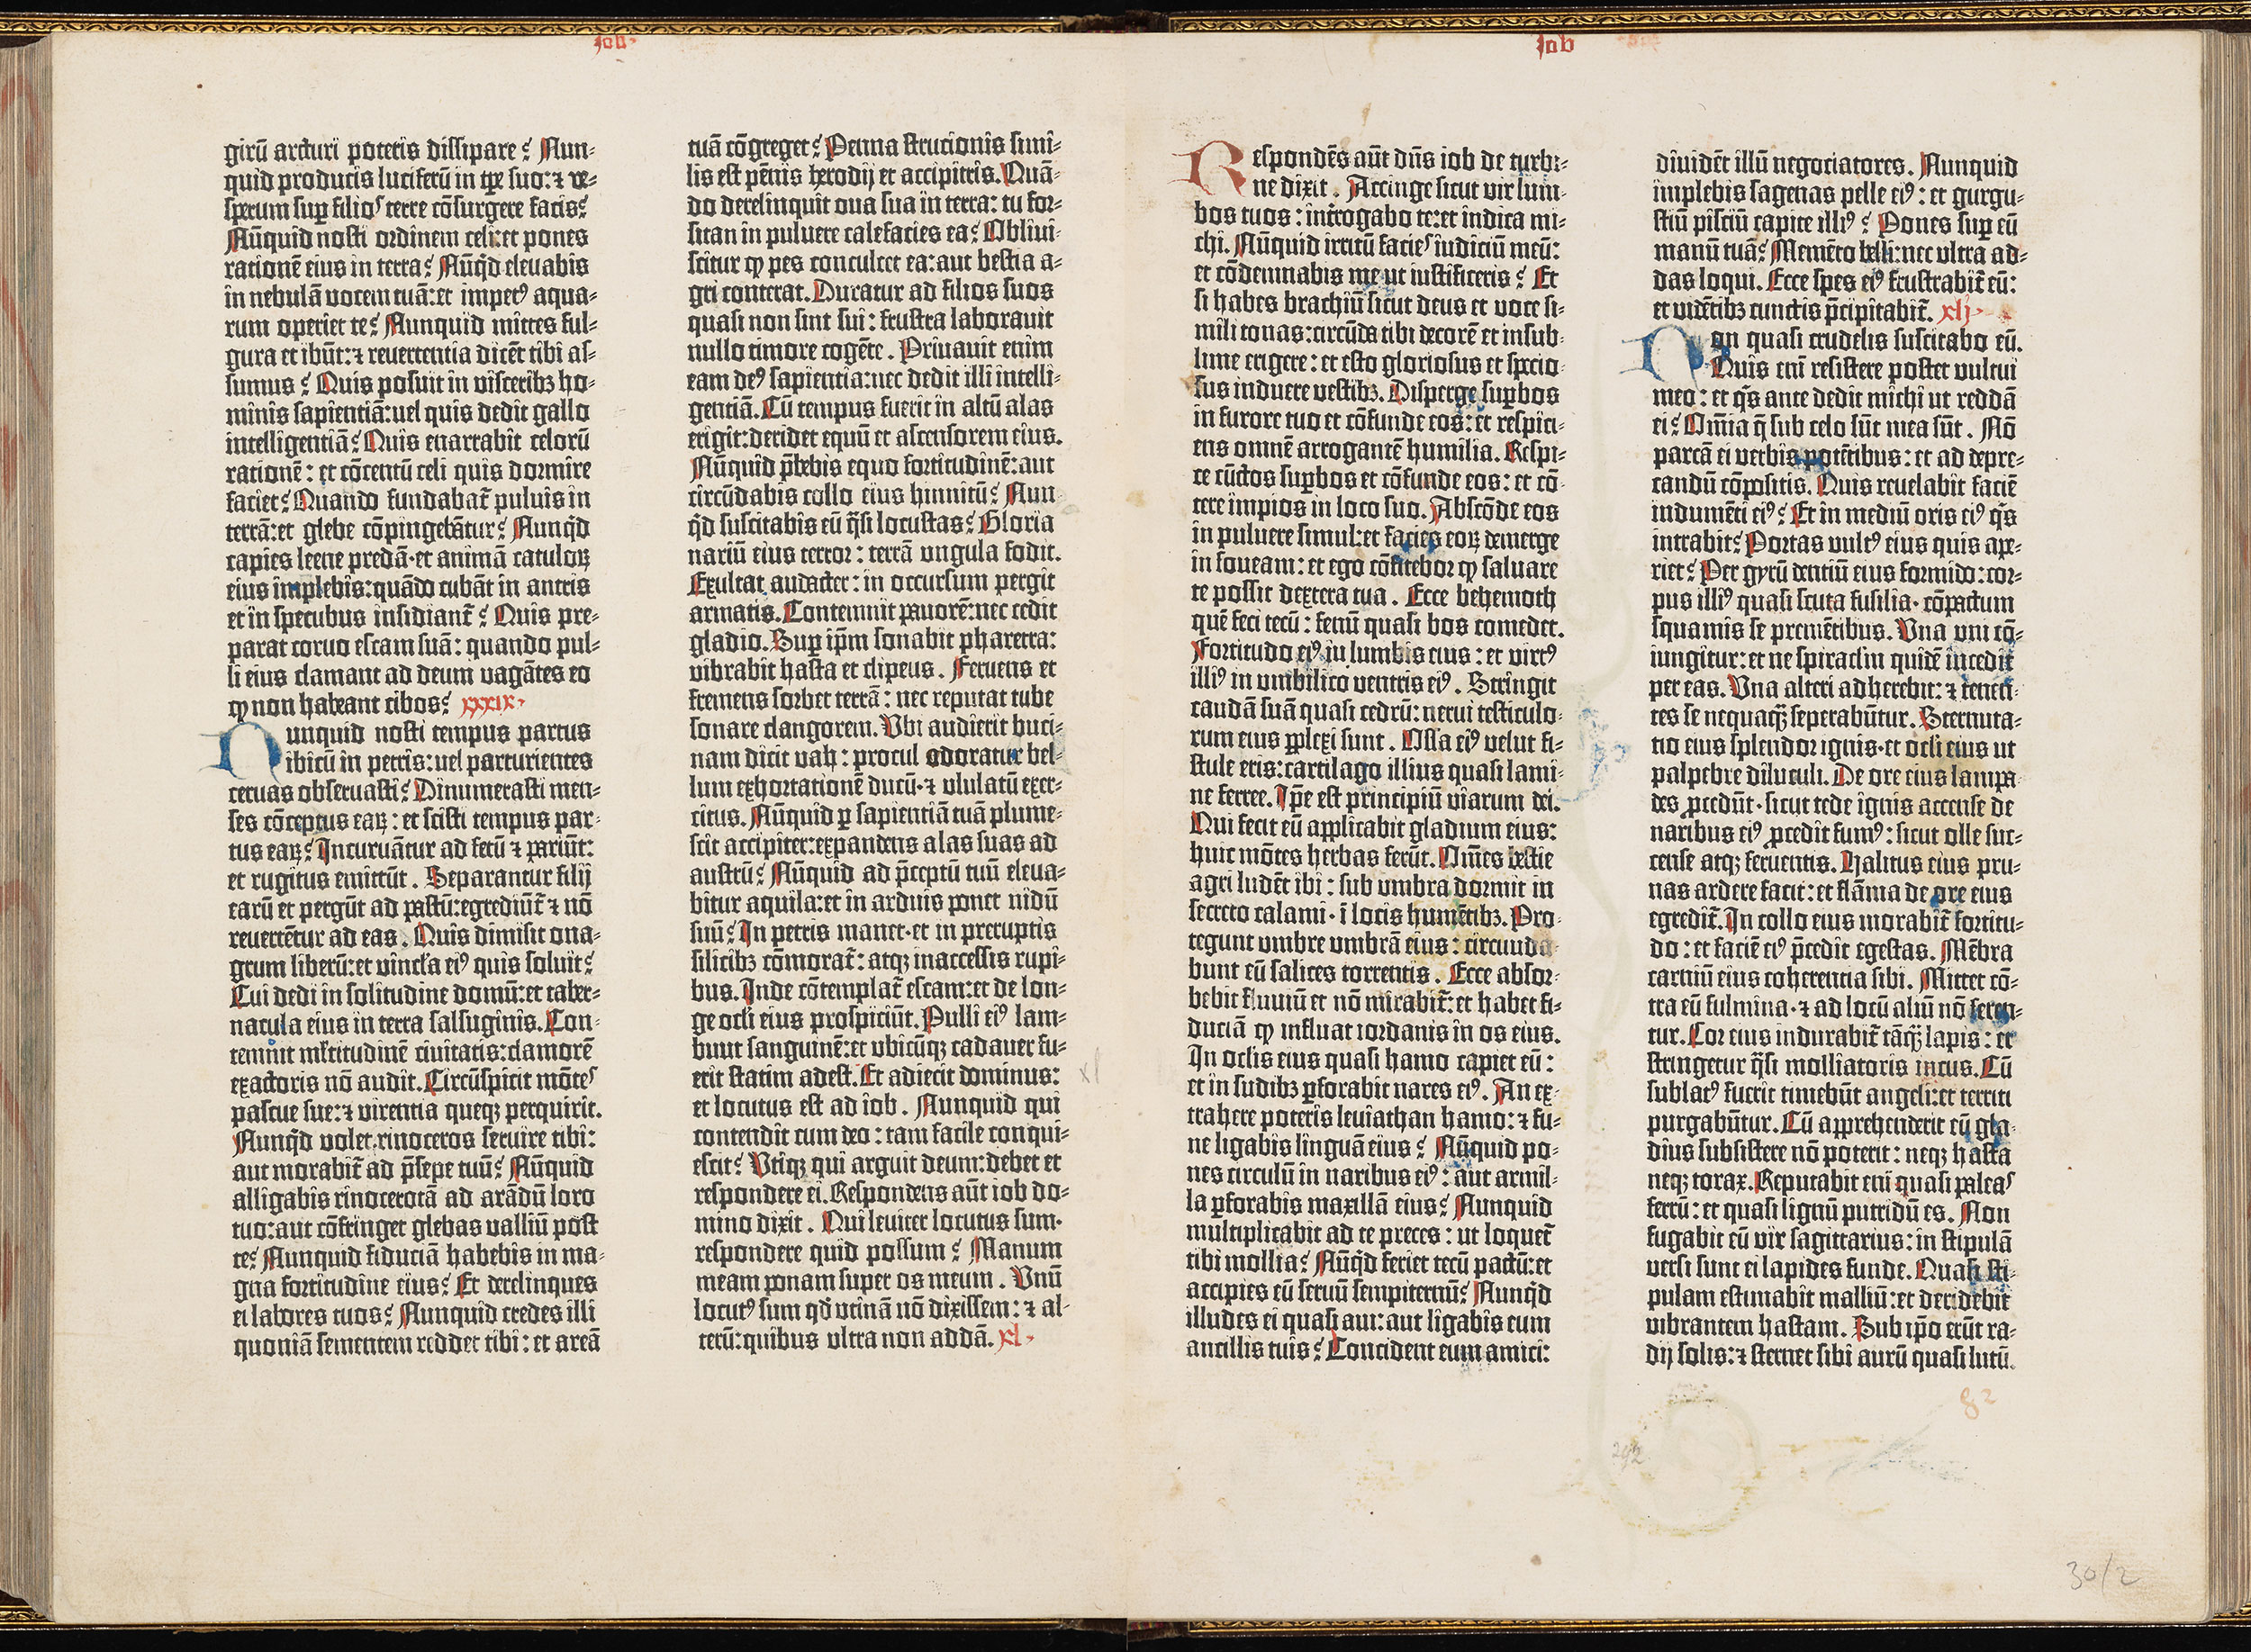 Job
girū arcturi poteris dissipare? Nun-
quid producis luciferū in tꝑe suo: ⁊ ve-
sperum suꝑ filios terre cōsurgere facis?
Nūquid nosti ordinem celi: et pones
rationē eius in terra? Nūq̄d elevabis
in nebulā vocem tuā: et impetꝰ aqua-
rum operiet te? Nunquid mittes ful-
gura et ibūt: ⁊ revertentia dicēt tibi as-
sumus? Quis posuit in visceribꝫ ho-
minis sapientiā: uel quis dedit gallo
intelligentiā? Quis enarrabit celorū
rationē: et cōcentū celi quis dormire
faciet? Quando fundabat᷑ puluis in
terrā: et glebe cōpingebātur? Nunq̄d
capies leene predā · et animā catuloꝝ
eius implebis: quādo cubāt in antris
et in specubus insidiant᷑? Quis pre-
parat coruo escam suā: quando pul-
li eius clamant ad deum vagātes eo
ꝙ non habeant cibos? xxxix·
Nunquid nosti tempus partus
ibicū in petris: uel parturientes
ceruas obseruasti? Dinumerasti men-
ses cōceptus eaꝝ: et scisti tempus par-
tus eaꝝ? Incuruātur ad fetū ⁊ pariūt:
et rugitus emittūt. Separantur filij
earū et pergūt ad pastū: egrediūt᷑ ⁊ nō
reuertētur ad eas. Quis dimisit ona-
grum liberū: et vincl'a eiꝰ quis soluit?
Cui dedi in solitudine domū: et taber-
nacula eius in terra salsuginis. Con-
temnit ml'titudinē ciuitatis: clamorē
exactoris nō audit. Circūspicit mōtes
pascue sue: ⁊ virentia queqꝫ perquirit.
Nunq̄d volet rinoceros seruire tibi:
aut morabit᷑ ad p̄sepe tuū? Nūquid
alligabis rinocerotā ad arādū loro
tuo: aut cōfringet glebas valliū post
te? Nunquid fiduciā habebis in ma-
gna fortitudine eius? Et derelinques
ei labores tuos? Nunquid credes illi
quoniā sementem reddet tibi: et areā
tuā cōgreget? Penna strucionis simi-
lis est pēnis herodij et accipitris. Quā-
do derelinquit oua sua in terra: tu for-
sitan in puluere calefacies ea? Obliui-
scitur ꝙ pes conculcet ea: aut bestia a-
gri conterat. Duratur ad filios suos
quasi non sint sui: frustra laborauit
nullo timore cogēte. Priuauit enim
eam deꝰ sapientia: nec dedit illi intelli-
gentiā. Cū tempus fuerit in altū alas
erigit: deridet equū et ascensorem eius.
Nūquid p̄bebis equo fortitudinē: aut
circūdabis collo eius hinnitū? Nun
q̄d suscitabis eū q̄si locustas? Gloria
nariū eius terror: terrā ungula fodit.
Exultat audacter: in occursum pergit
armatis. Contemnit pauorē: nec cedit
gladio. Suꝑ ip̄m sonabit pharetra:
vibrabit hasta et clipeus. Feruens et
fremens sorbet terrā: nec reputat tube
sonare clangorem. Vbi audierit buci-
nam dicit vah: procul odoratur bel-
lum exhortationē ducū · ⁊ ululatū exer-
citus. Nūquid ꝑ sapientiā tuā plume-
scit accipiter: expandens alas suas ad
austrū? Nūquid ad p̄ceptū tuū eleua-
bitur aquila: et in arduis ponet nidū
suū? In petris manet · et in preruptis
silicibꝫ cōmorat᷑: atqꝫ inaccessis rupi-
bus. Inde cōtemplat᷑ escam: et de lon-
ge ocl'i eius prospiciūt. Pulli eiꝰ lam-
bunt sanguinē: et ubicūqꝫ cadauer fu-
erit statim adest. Et adiecit dominus:
et locutus est ad iob. Nunquid qui
contendit cum deo: tam facile conqui-
escit? Vtiqꝫ qui arguit deum: debet et
respondere ei. Respondens aūt iob do-
mino dixit. Qui leuiter locutus sum ·
respondere quid possum? Manum
meam ponam super os meum. Vnū
locutꝰ sum qd̄ utinā nō dixissem: ⁊ al-
terū: quibus ultra non addā. xl·
xl
Job
Respondēs aūt dn̄s iob de turbi-
ne dixit. Accinge sicut vir lum-
bos tuos: int̄rogabo te: et indica mi-
chi. Nūquid irritū facies iudiciū meū:
et cōdemnabis me ut iustificeris? Et
si habes brachiū sicut deus et voce si-
mili tonas: circūda tibi decorē et in sub-
lime erigere: et esto gloriosus et specio-
sus induere vestibꝫ. Disperge suꝑbos
in furore tuo et cōfunde eos: et respici-
ens omnē arrogantē humilia. Respi-
ce cūctos suꝑbos et cōfunde eos: et cō-
tere impios in loco suo. Abscōde eos
in puluere simul: et facies eoꝝ demerge
in foueam: et ego cōfitebor ꝙ saluare
te possit dextera tua. Ecce behemoth
quē feci tecū: fenū quasi bos comedet.
Fortitudo eiꝰ in lumbis eius: et virtꝰ
illiꝰ in umbilico ventris eiꝰ. Stringit
caudā suā quasi cedrū: nerui testiculo-
rum eius ꝑplexi sunt. Ossa eiꝰ velut fi-
stule eris: cartilago illius quasi lami-
ne ferree. Ip̄e est principiū viarum dei.
Qui fecit eū applicabit gladium eius:
huic mōtes herbas ferūt. Om̄es bestie
agri ludēt ibi: sub umbra dormit in
secreto calami · ī locis humētibꝫ. Pro-
tegunt umbre umbrā eius: circunda-
bunt eū salices torrentis. Ecce absor-
bebit fluuiū et nō mirabit᷑: et habet fi-
duciā ꝙ influat iordanis in os eius.
In ocl'is eius quasi hamo capiet eū:
et in sudibꝫ ꝑforabit nares eiꝰ. An ex-
trahere poteris leuiathan hamo: ⁊ fu-
ne ligabis linguā eius? Nūquid po-
nes circulū in naribus eiꝰ: aut armil-
la ꝑforabis maxillā eius? Nunquid
multiplicabit ad te preces: ut loquet᷑
tibi mollia? Nūq̄d feriet tecū pactū: et
accipies eū seruū sempiternū? Nunq̄d
illudes ei quasi aui: aut ligabis eum
ancillis tuis? Concident eum amici:
diuidēt illū negociatores. Nunquid
implebis sagenas pelle eiꝰ: et gurgu-
stiū pisciū capite illiꝰ? Pones suꝑ eū
manū tuā? Memēto belli: nec ultra ad-
das loqui. Ecce spes eiꝰ frustrabit᷑ eū:
et vidētibꝫ cunctis p̄cipitabit᷑. xlj·
Non quasi crudelis suscitabo eū.
Quis eni resistere potest vultui
meo: et q̄s ante dedit michi ut reddā
ei? Om̄ia q̄ sub celo sūt mea sūt. Nō
parcā ei verbis potētibus: et ad depre-
candū cōpositis. Quis reuelabit faciē
indumēti eiꝰ? Et in mediū oris eiꝰ q̄s
intrabit? Portas vultꝰ eius quis ape-
riet? Per gyrū dentiū eius formido: cor-
pus illiꝰ quasi scuta fusilia · cōpactum
squamis se premētibus. Vna uni cō-
iungitur: et ne spiraclm quidē incedit
per eas. Vna alteri adherebit: ⁊ tenen-
tes se nequaq̄ꝫ seperabūtur. Sternuta-
tio eius splendor ignis · et ocl'i eius ut
palpebre diluculi. De ore eius lampa-
des ꝓcedūt · sicut tede ignis accense de
naribus eiꝰ ꝓcedit fumꝰ: sicut olle suc-
cense atqꝫ feruentis. Halitus eius pru-
nas ardere facit: et flāma de ore eius
egredit᷑. In collo eius morabit᷑ fortitu-
do: et faciē eiꝰ p̄cedit egestas. Mēbra
carniū eius coherentia sibi. Mittet cō-
tra eū fulmina · ⁊ ad locū aliū nō feren-
tur. Cor eius indurabit᷑ tāq̄ꝫ lapis: et
stringetur q̄si molliatoris incus. Cū
sublatꝰ fuerit timebūt angeli: et territi
purgabūtur. Cū apprehenderit eū gla-
dius subsistere nō poterit: neqꝫ hasta
neqꝫ torax. Reputabit eni quasi paleas
ferrū: et quasi lignū putridū es. Non
fugabit eū vir sagittarius: in stipulā
versi sunt ei lapides funde. Quasi sti-
pulam estimabit malliū: et deridebit
vibrantem hastam. Sub ip̄o erūt ra-
dij solis: ⁊ sternet sibi aurū quasi lutū.
82
292
30/2